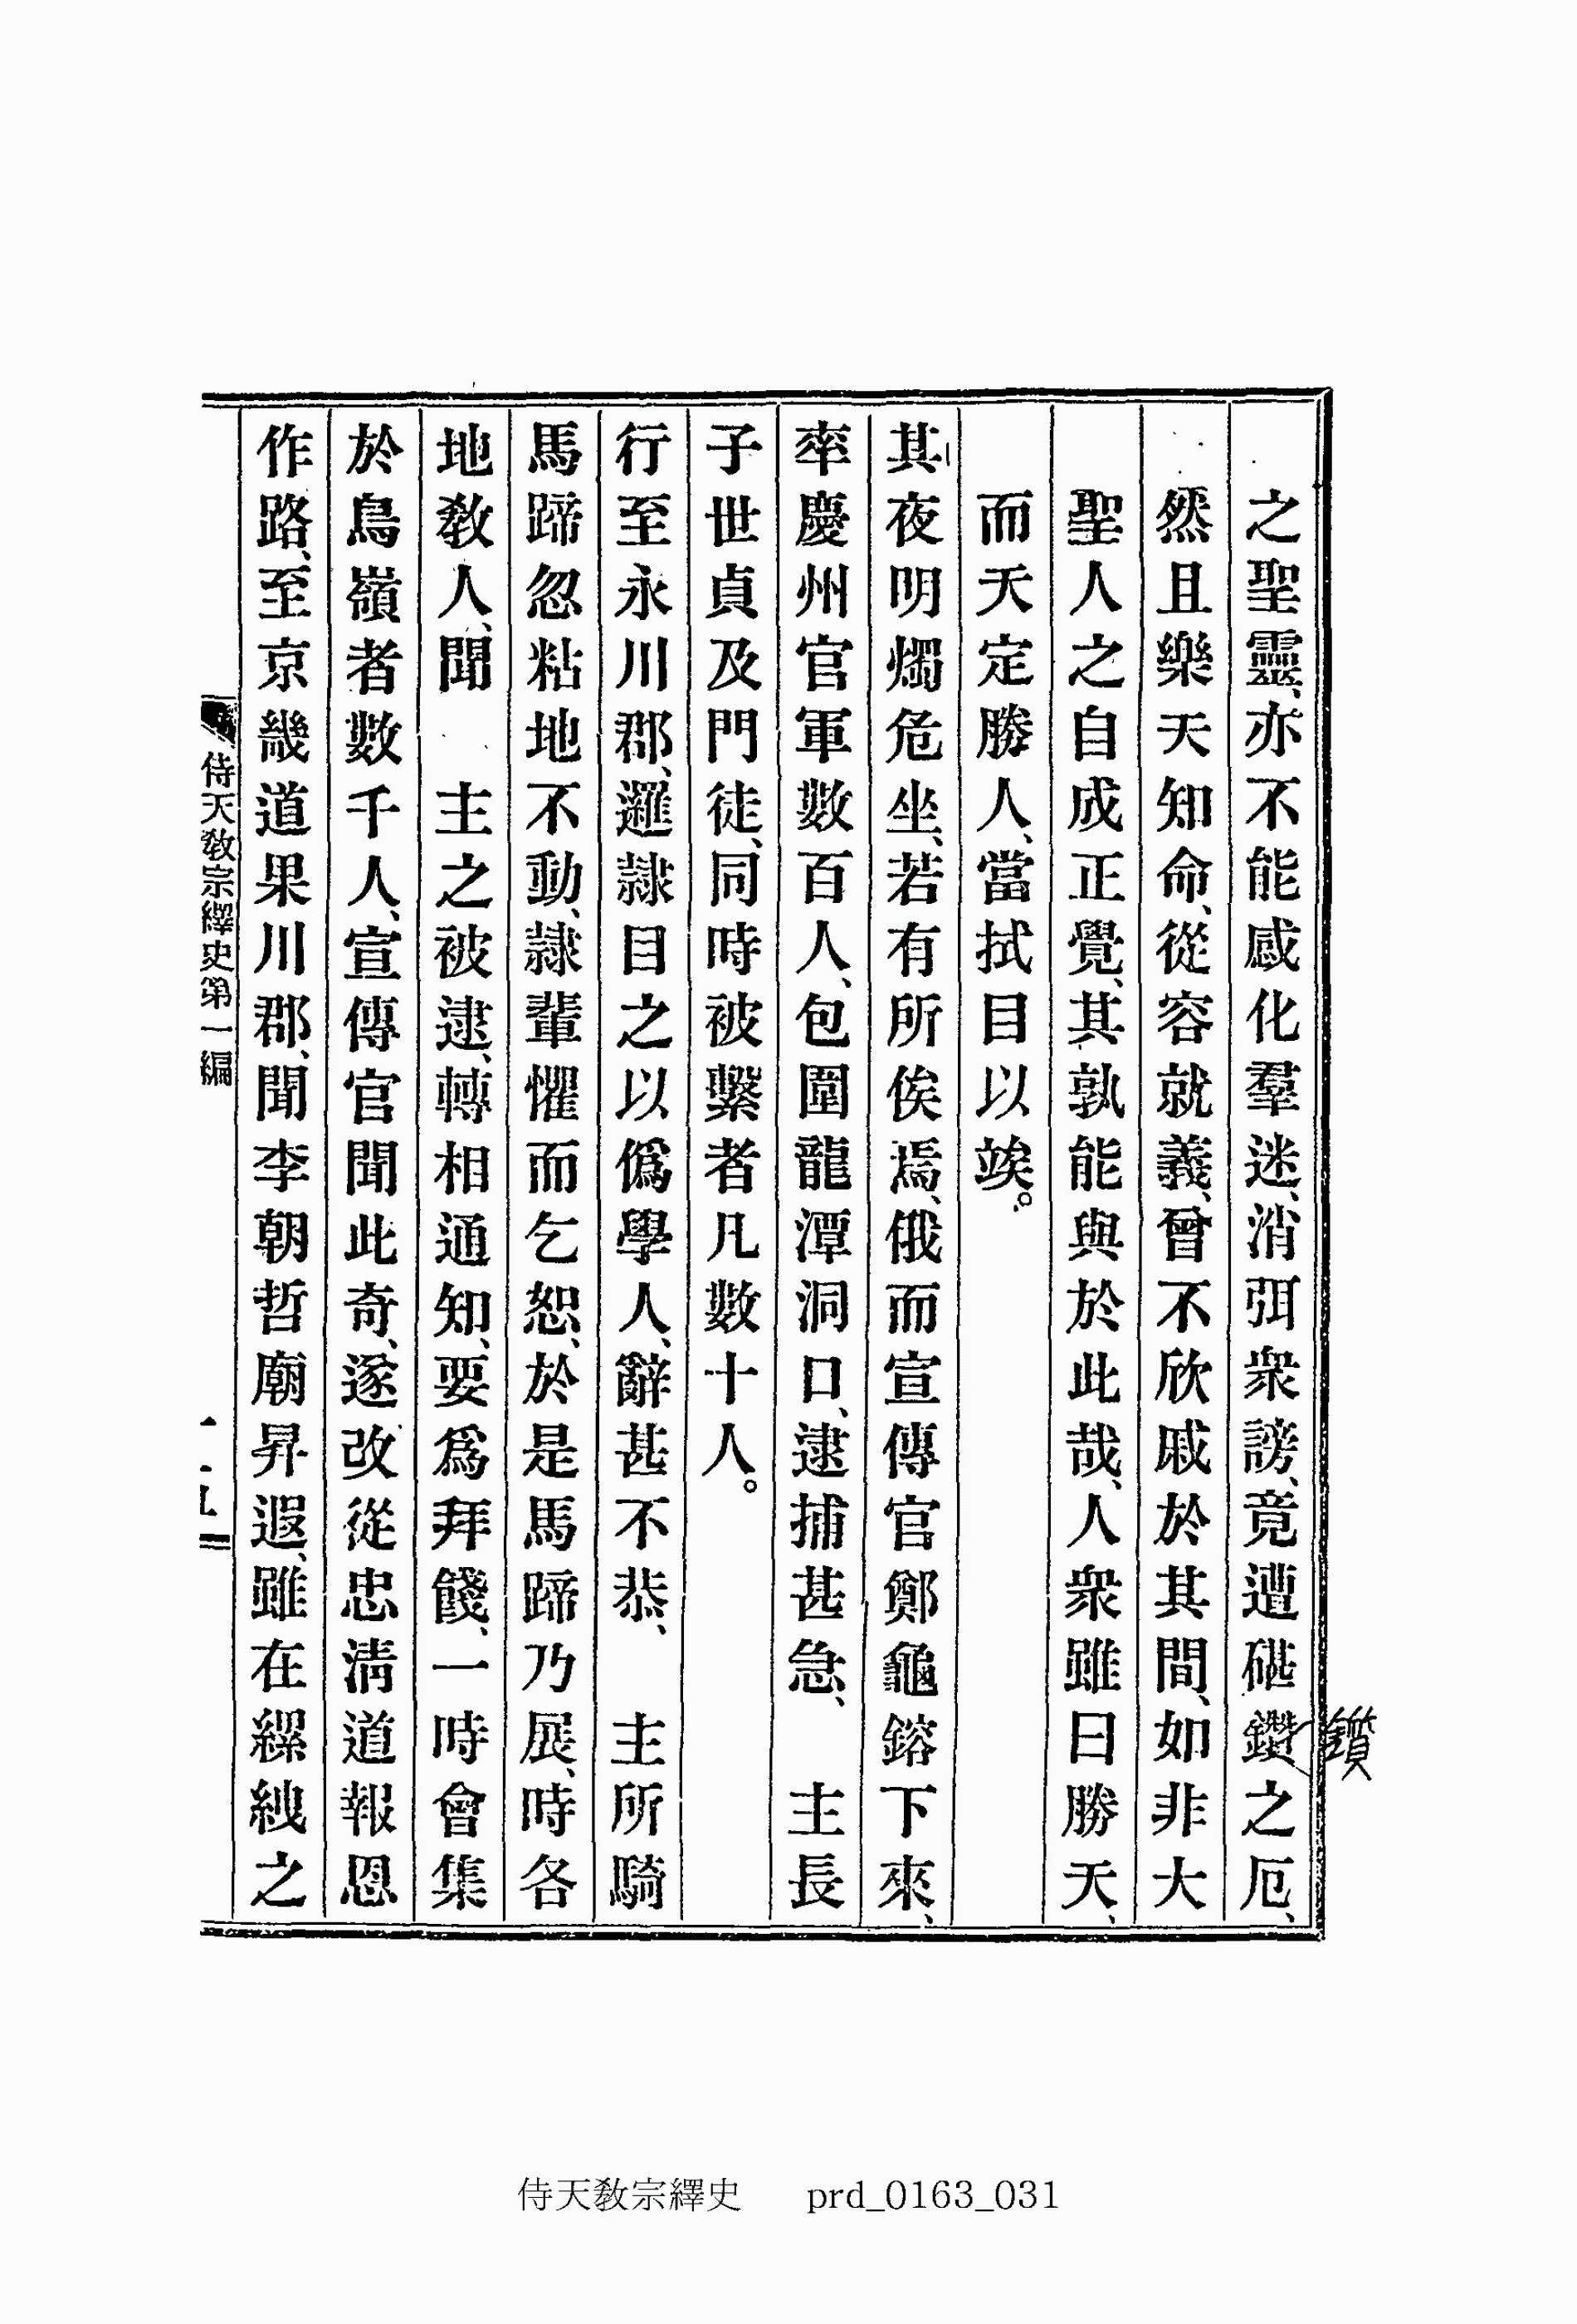 之聖靈、亦不能感化羣迷、消弭衆謗、竟遭碪鑽之厄、
然且樂天知命、從容就義、曾不欣戚於其間、如非大
聖人之自成正覺、其孰能與於此哉、人衆雖曰勝天、
而天定勝人、當拭目以竢。
其夜明燭危坐、若有所俟焉、俄而宣傳官鄭龜鎔下來、
率慶州官軍數百人、包圍龍潭洞口、逮捕甚急、　主長
子世貞及門徒、同時被繫者凡數十人。
行至永川郡、邏隷目之以僞學人、辭甚不恭、　主所騎
馬蹄忽粘地不動、隷輩懼而乞恕、於是馬蹄乃展、時各
地敎人、聞　主之被逮、轉相通知、要爲拜餞、一時會集
於鳥嶺者數千人、宣傳官聞此奇、遂改從忠淸道報恩
作路、至京畿道果川郡、聞李朝哲廟昇遐、雖在縲絏之
侍天敎宗繹史第一編
鑕
侍天敎宗繹史 prd_0163_031